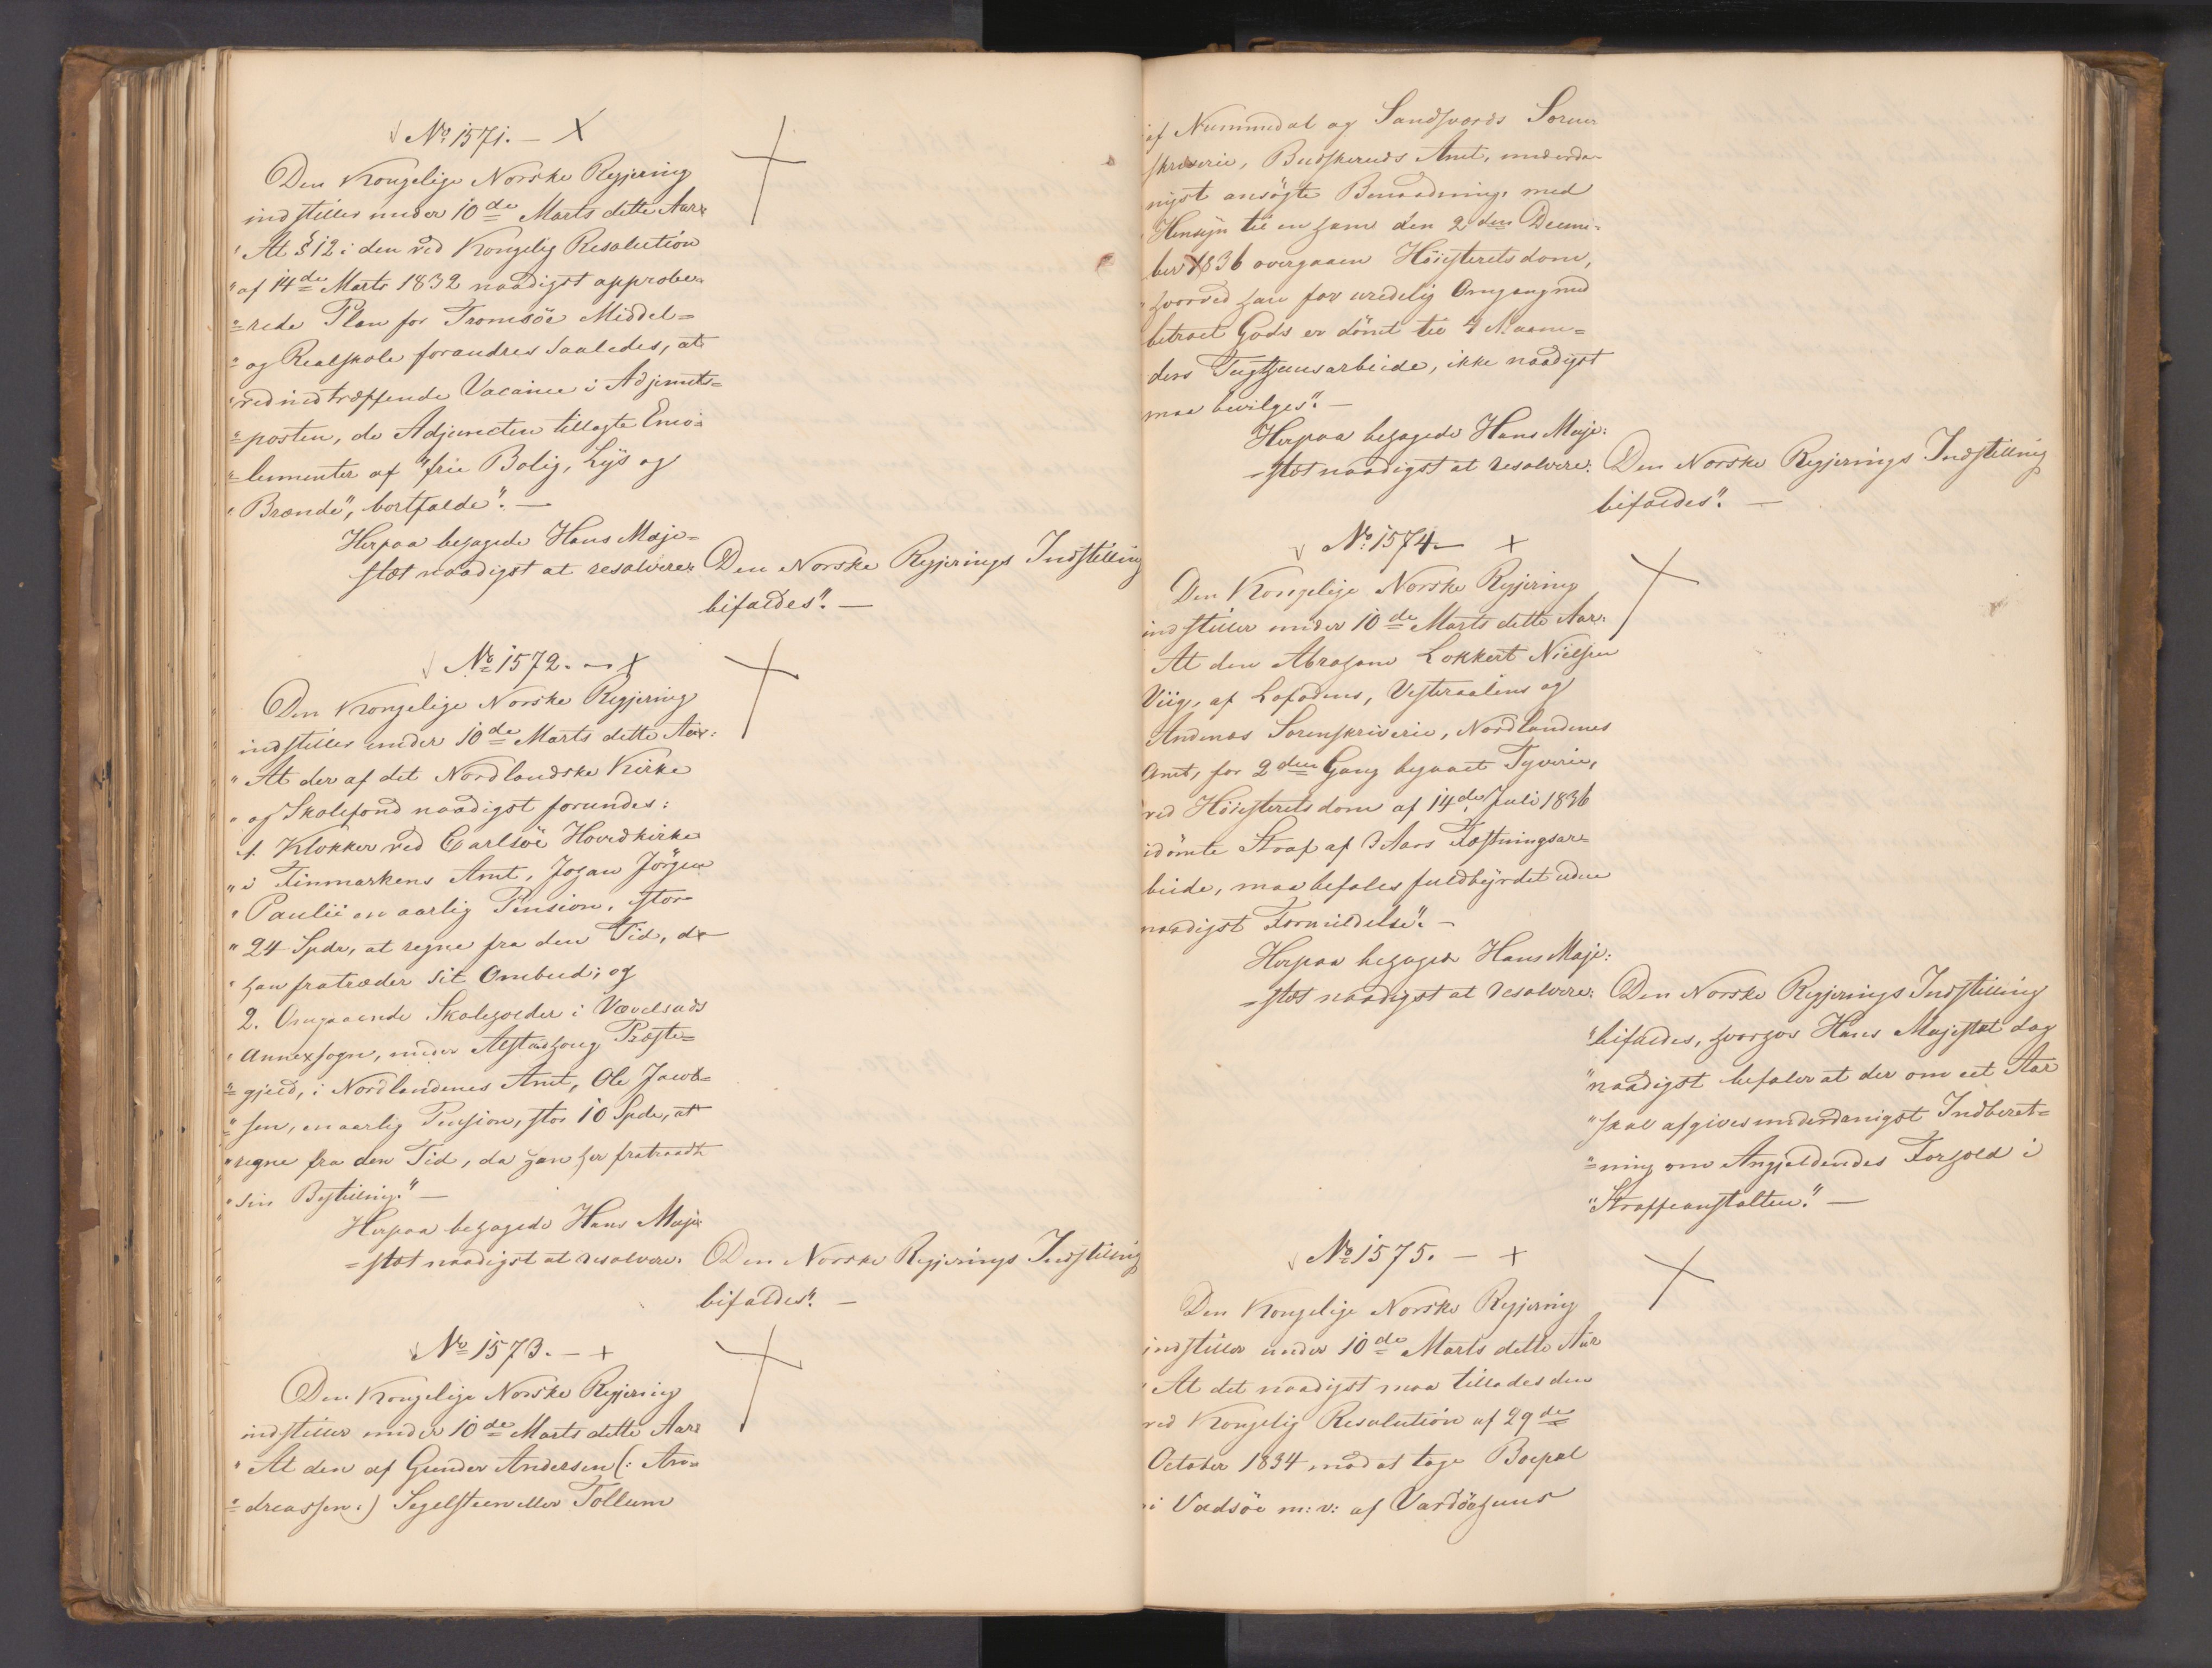 № 1571. — X
Den Kongelige Norske Regjering
indstiller under 10de Marts dette Aar:
"At § 12 i den ved Kongelig Resolution
"af 14de Marts 1832 naadigst approbe-
"rede Plan for Tromsöe Middel-
"og Realskole forandres saaledes, at
"ved indtræffende Vacance i Adjuncts-
"posten, de Adjuncten tillagte Emo-
"lumenter af "frie Bolig, Lys og
"Brænde", bortfalde". —
Herpaa behagede Hans Maje-
stæt naadigst at resolvere: Den Norske Regjerings Indstilling
bifaldes". —
№ 1572. — X
Den Kongelige Norske Regjering
indstiller under 10de Marts dette Aar:
"At der af det Nordlandske Kirke
"og Skolefond naadigst forundes:
1. Klokker ved Carlsöe Hovedkirke
"i Finmarkens Amt, Johan Jörgen
"Paulii en aarlig Pension, stor
"24 Spdr, at regne fra den Tid, da
"han fratræder sit Ombud; og
2. Omgaaende Skoleholder i Vævelstads
"Annexsogn, under Alstadhoug Præste-
"gjeld, i Nordlandenes Amt, Ole Jacob-
"sen, en aarlig Pension, stor 10 Spdr, at
"regne fra den Tid, da han har fratraadt
"sin Bestilling." —
Herpaa behagede Hans Maje-
stæt naadigst at resolvere: Den Norske Regjerings Indstilling
bifaldes". —
№ 1573. — +
Den Kongelige Norske Regjering
indstiller under 10de Marts dette Aar:
"At den af Gunder Andersen (: An-
"dreassen :) Segelsteen eller Tollum
af Nummedal og Sandsværds Soren-
skriverie, Buskeruds Amt, underda-
nigst ansögte Benaadning, med
Hensyn til en ham den 2den Decem-
ber 1836 overgaaen Höiesteretsdom,
hvorved han for uredelig Omgang med
betroet Gods er dömt til 4 Maane-
ders Tugthuusarbeide, ikke naadigst
maa bevilges". —
Herpaa behagede Hans Maje-
stæt naadigst at resolvere: Den Norske Regjerings Indstilling
bifaldes". —
№ 1574. — +
Den Kongelige Norske Regjering
indstiller under 10de Marts dette Aar:
At den Abraham Lokkert Nielsen
Viig, af Lofodens, Vesteraalens og
Andenæs Sorenskriverie, Nordlandenes
Amt, for 2den Gang begaaet Tyverie,
ved Höiesteretsdom af 14de Juli 1836
idömte Straf af 3 Aars Fæstningsar-
beide, maa befales fuldbyrdet uden
naadigst Formildelse". —
Herpaa behagede Hans Maje-
stæt naadigst at resolvere: Den Norske Regjerings Indstilling
"bifaldes, hvorhos Hans Majestæt dog
"naadigst befaler at der om eet Aar
"skal afgives underdanigst Indberet-
"ning om Angjeldendes Forhold i
"Straffeanstalten". —
№ 1575. — +
Den Kongelige Norske Regjering
indstiller under 10de Marts dette Aar
"At det naadigst maa tillades den
ved Kongelig Resolution af 29de
October 1834, mod at tage Bopæl
i Vadsöe m: v: af Vardöehuus